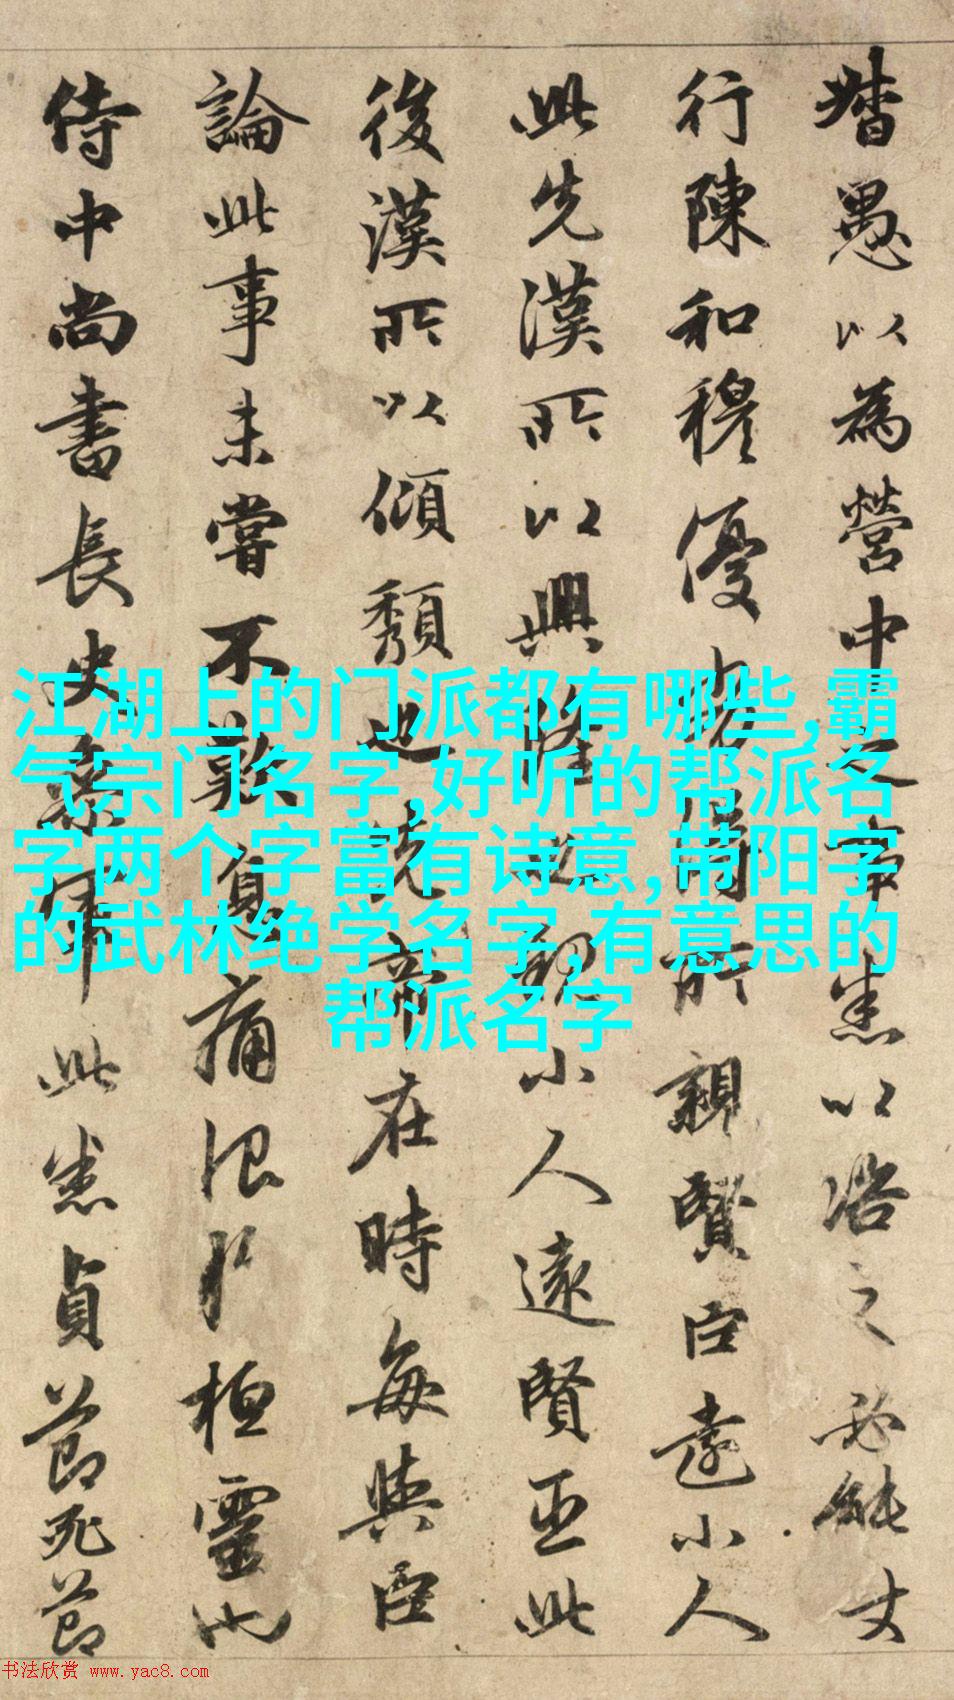 督愚以為營中之事悉以咨之必能使
行陳和穆優劣得所親賢臣遠小人
此先漢所以興隆也親小人遠賢臣此
後漢所以傾頹也先帝在時每與臣
論此事未嘗不歎息痛恨於桓靈也
侍中尚書長史參軍此悉貞節死節
江湖上的门派都有哪些,霸
气宗门名字,好听的帮派名
字两个字富有诗意,带阳字
的武林绝学名字,有意思的
帮派名字
书法欣赏 www.yac8.com